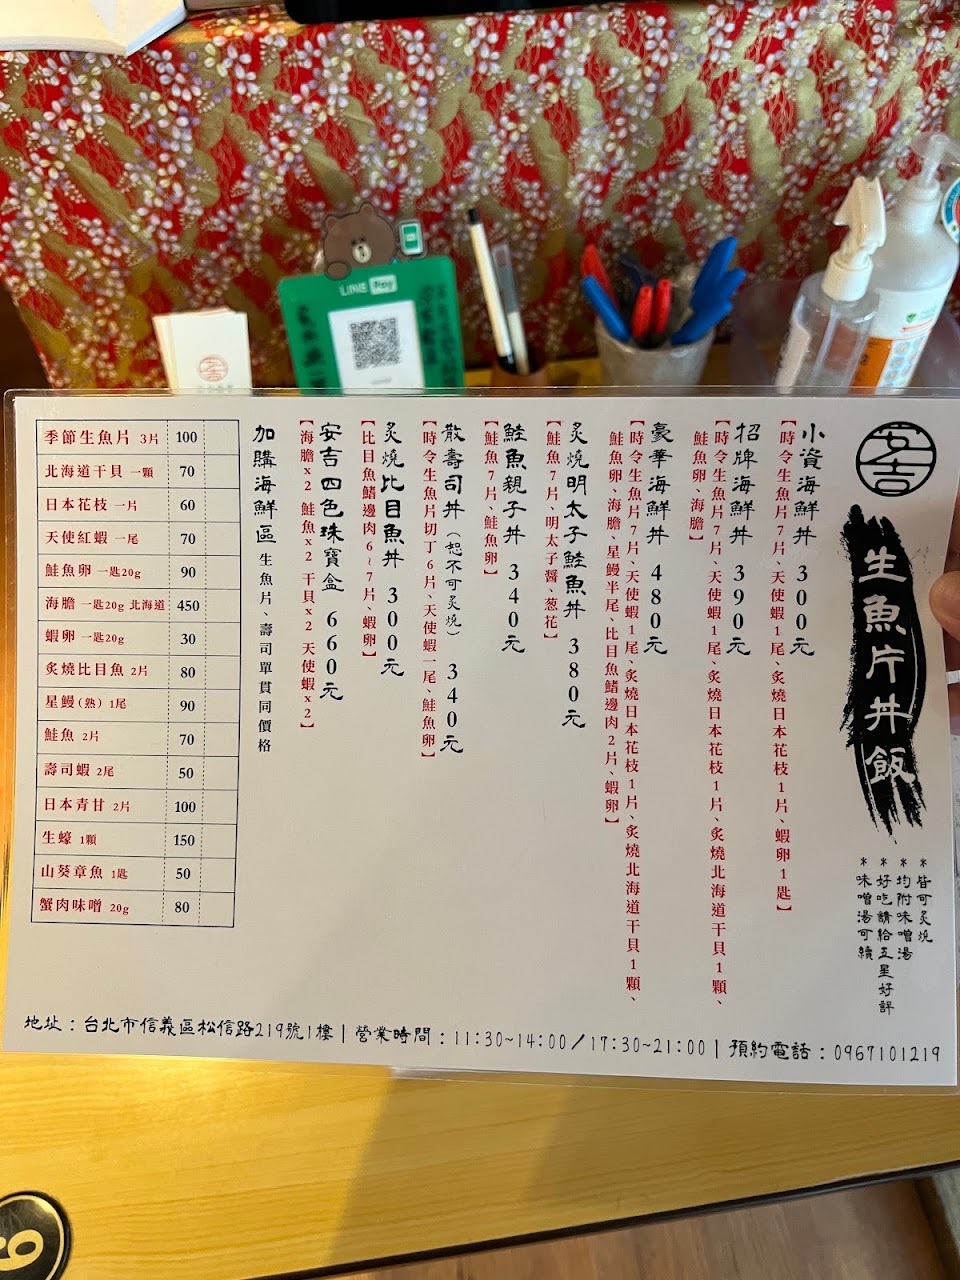 LINE Pay
安吉
生魚片丼飯
*皆可炙燒
*均附味噌湯
*好吃請給五星好評
味噌湯可續
小資海鮮丼 300元
【時令生魚片7片、天使蝦1尾、炙燒日本花枝1片、蝦卵1匙】
招牌海鮮丼 390元
【時令生魚片7片、天使蝦1尾、炙燒日本花枝1片、炙燒北海道干貝1顆、
鮭魚卵、海膽】
豪華海鮮丼 480元
【時令生魚片7片、天使蝦1尾、炙燒日本花枝1片、炙燒北海道干貝1顆、
鮭魚卵、海膽、星鰻半尾、比目魚鰭邊肉2片、蝦卵】
炙燒明太子鮭魚丼 380元
【鮭魚7片、明太子醬、葱花】
鮭魚親子丼 340元
【鮭魚7片、鮭魚卵】
散壽司丼(恕不可炙燒) 340元
【時令生魚片切丁6片、天使蝦一尾、鮭魚卵】
炙燒比目魚丼 300元
【比目魚鰭邊肉6~7片、蝦卵】
安吉四色珠寶盒 660元
【海膽x2 鮭魚x2 干貝x2 天使蝦x2】
加購海鮮區 生魚片、壽司單貫同價格
季節生魚片 3片 100
北海道干貝 一顆 70
日本花枝 一片 60
天使紅蝦 一尾 70
鮭魚卵 一匙20g 90
海膽 一匙20g 北海道 450
蝦卵 一匙20g 30
炙燒比目魚 2片 80
星鰻(熟) 1尾 90
鮭魚 2片 70
壽司蝦 2尾 50
日本青甘 2片 100
生蠔 1顆 150
山葵章魚 1匙 50
蟹肉味噌 20g 80
地址：台北市信義區松信路219號1樓 | 營業時間：11:30~14:00/17:30~21:00 | 預約電話：0967101219